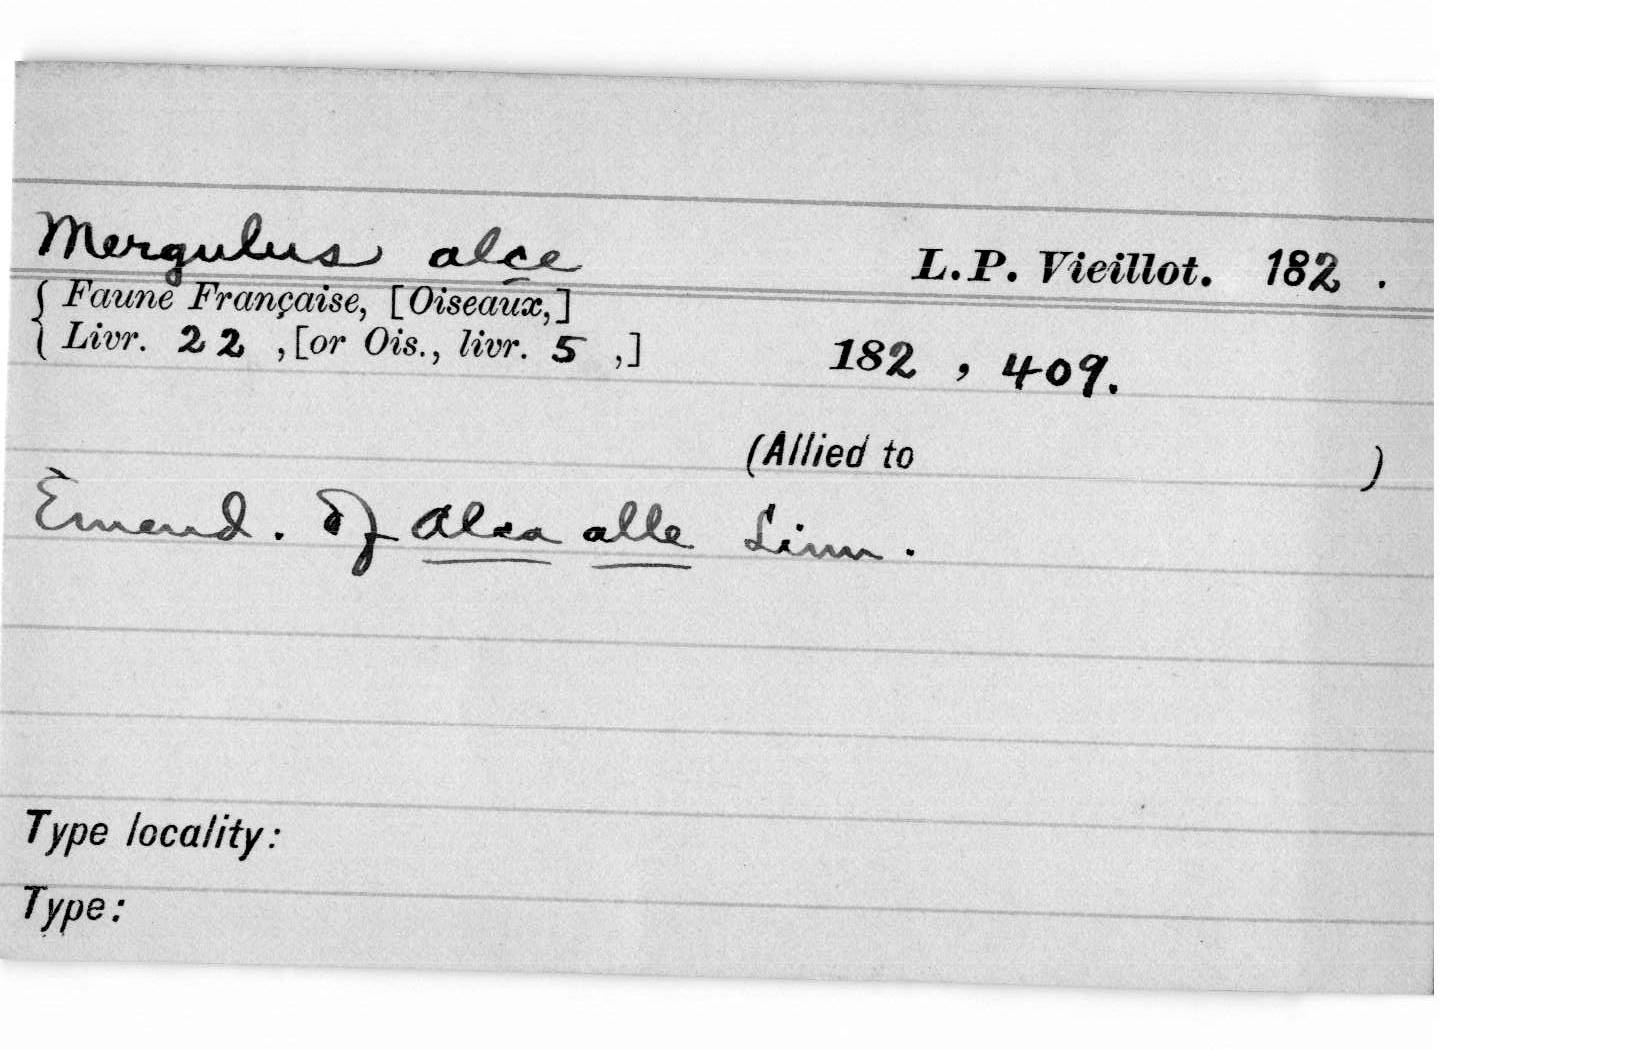 Mergulus alce L.P. Vieillot. 182 .
{ Faune Française, [Oiseaux,]
Livr. 22 , [or Ois., livr. 5 ,] 182 , 409.
(Allied to )
Emend. of Alca alle Linn.
Type locality:
Type: